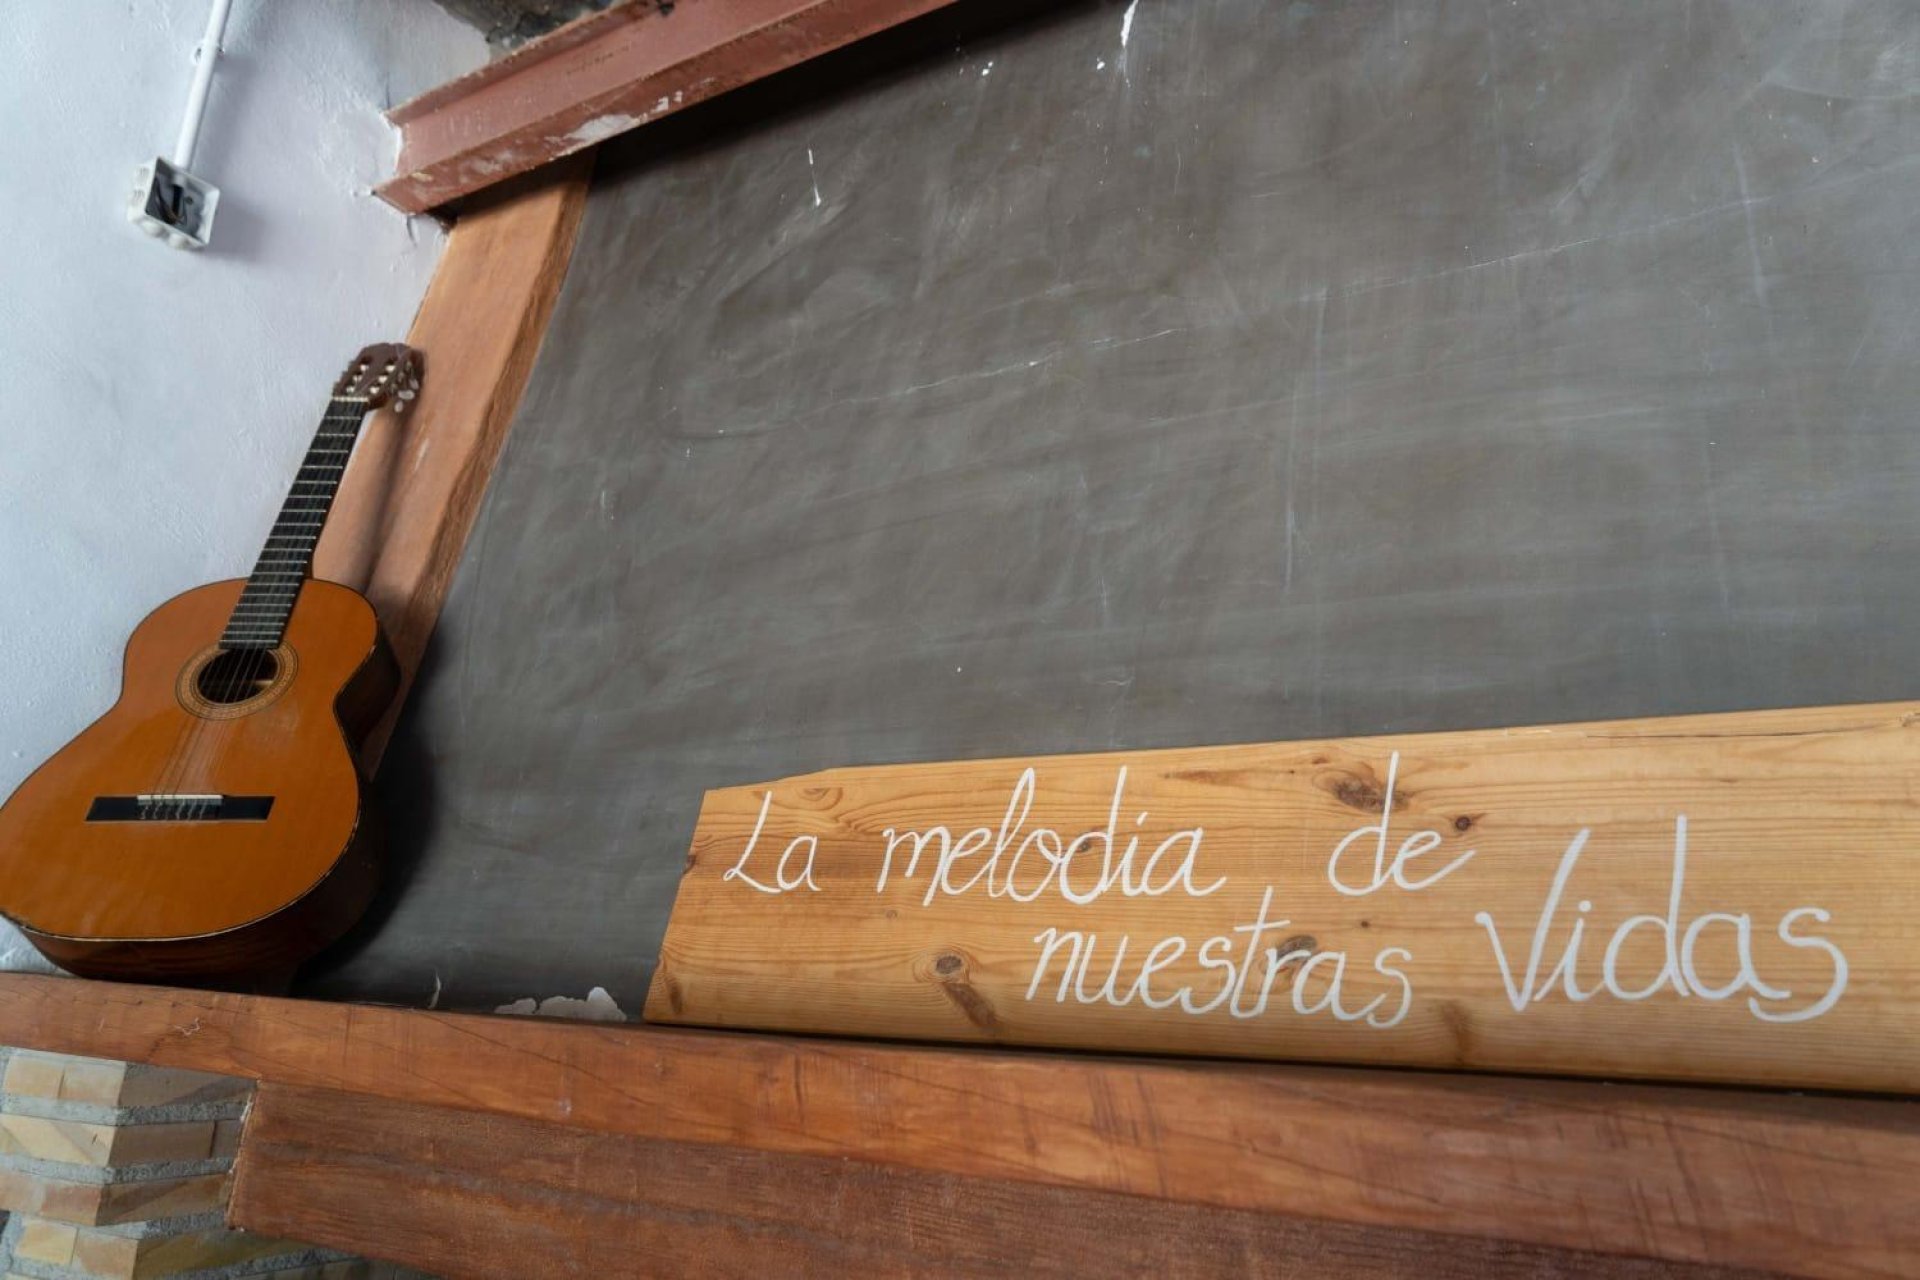 La melodia de
nuestras Vidas